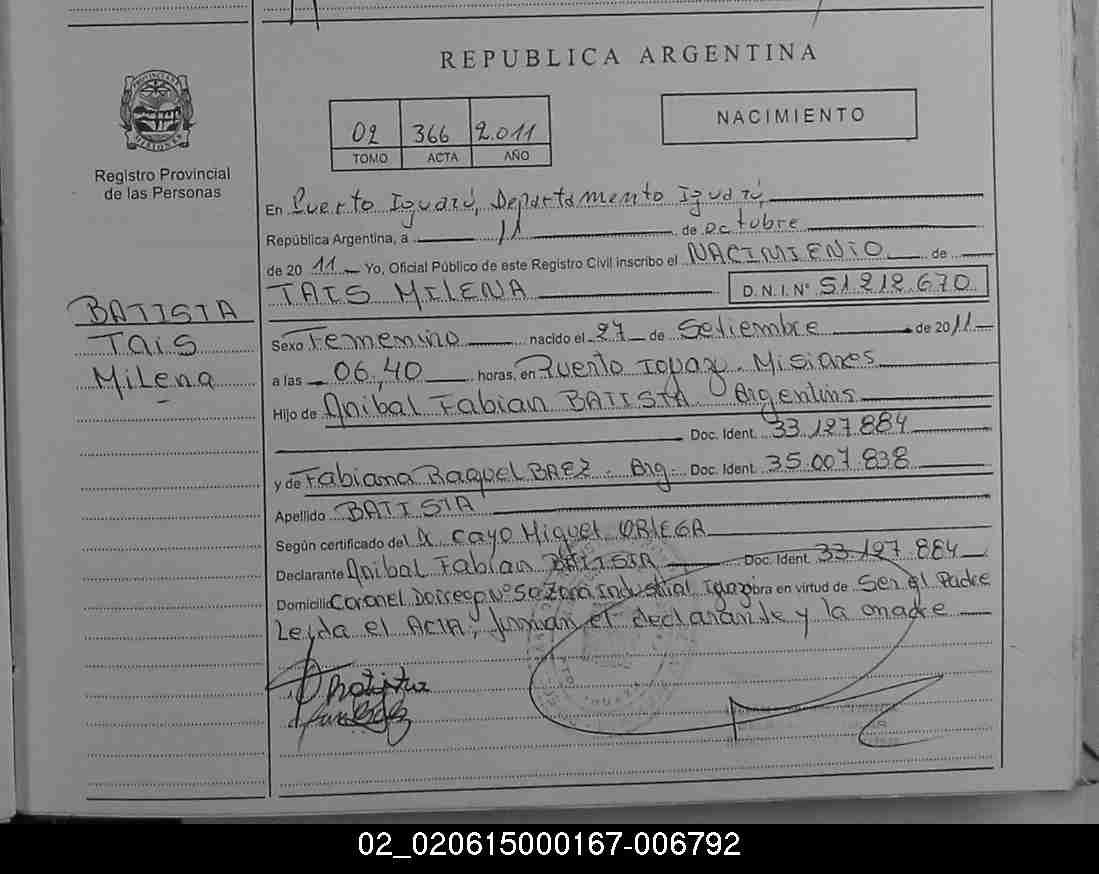 REPUBLICA ARGENTINA
PROVINCIA DE MISIONES
Registro Provincial
de las Personas
02 366 2.011
TOMO ACTA AÑO
NACIMIENTO
En Puerto Iguazú, Departamento Iguazú,
República Argentina, a 11 de Octubre
de 20 11 Yo, Oficial Público de este Registro Civil inscribo el NACIMIENTO de
TAIS MILENA D.N.I. N° 51.212.670
BATISTA
Tais
Milena
Sexo Femenino nacido el 27 de Setiembre de 2011
a las 06,40 horas, en Puerto Iguazu. Misiones
Hijo de Anibal Fabian BATISTA Argentino
Doc. Ident. 33.127.884
y de Fabiana Raquel BAEZ. Arg. Doc. Ident. 35.007.838
Apellido BATISTA
Según certificado del Cayo Miguel ORTEGA
Declarante Anibal Fabian BATISTA Doc. Ident. 33.127.884
Domicilio Coronel Dorrego N° 50 Zona Industrial Iguazú obra en virtud de Ser el Padre
Leída el ACTA, firman el declarante y la madre
02_020615000167-006792